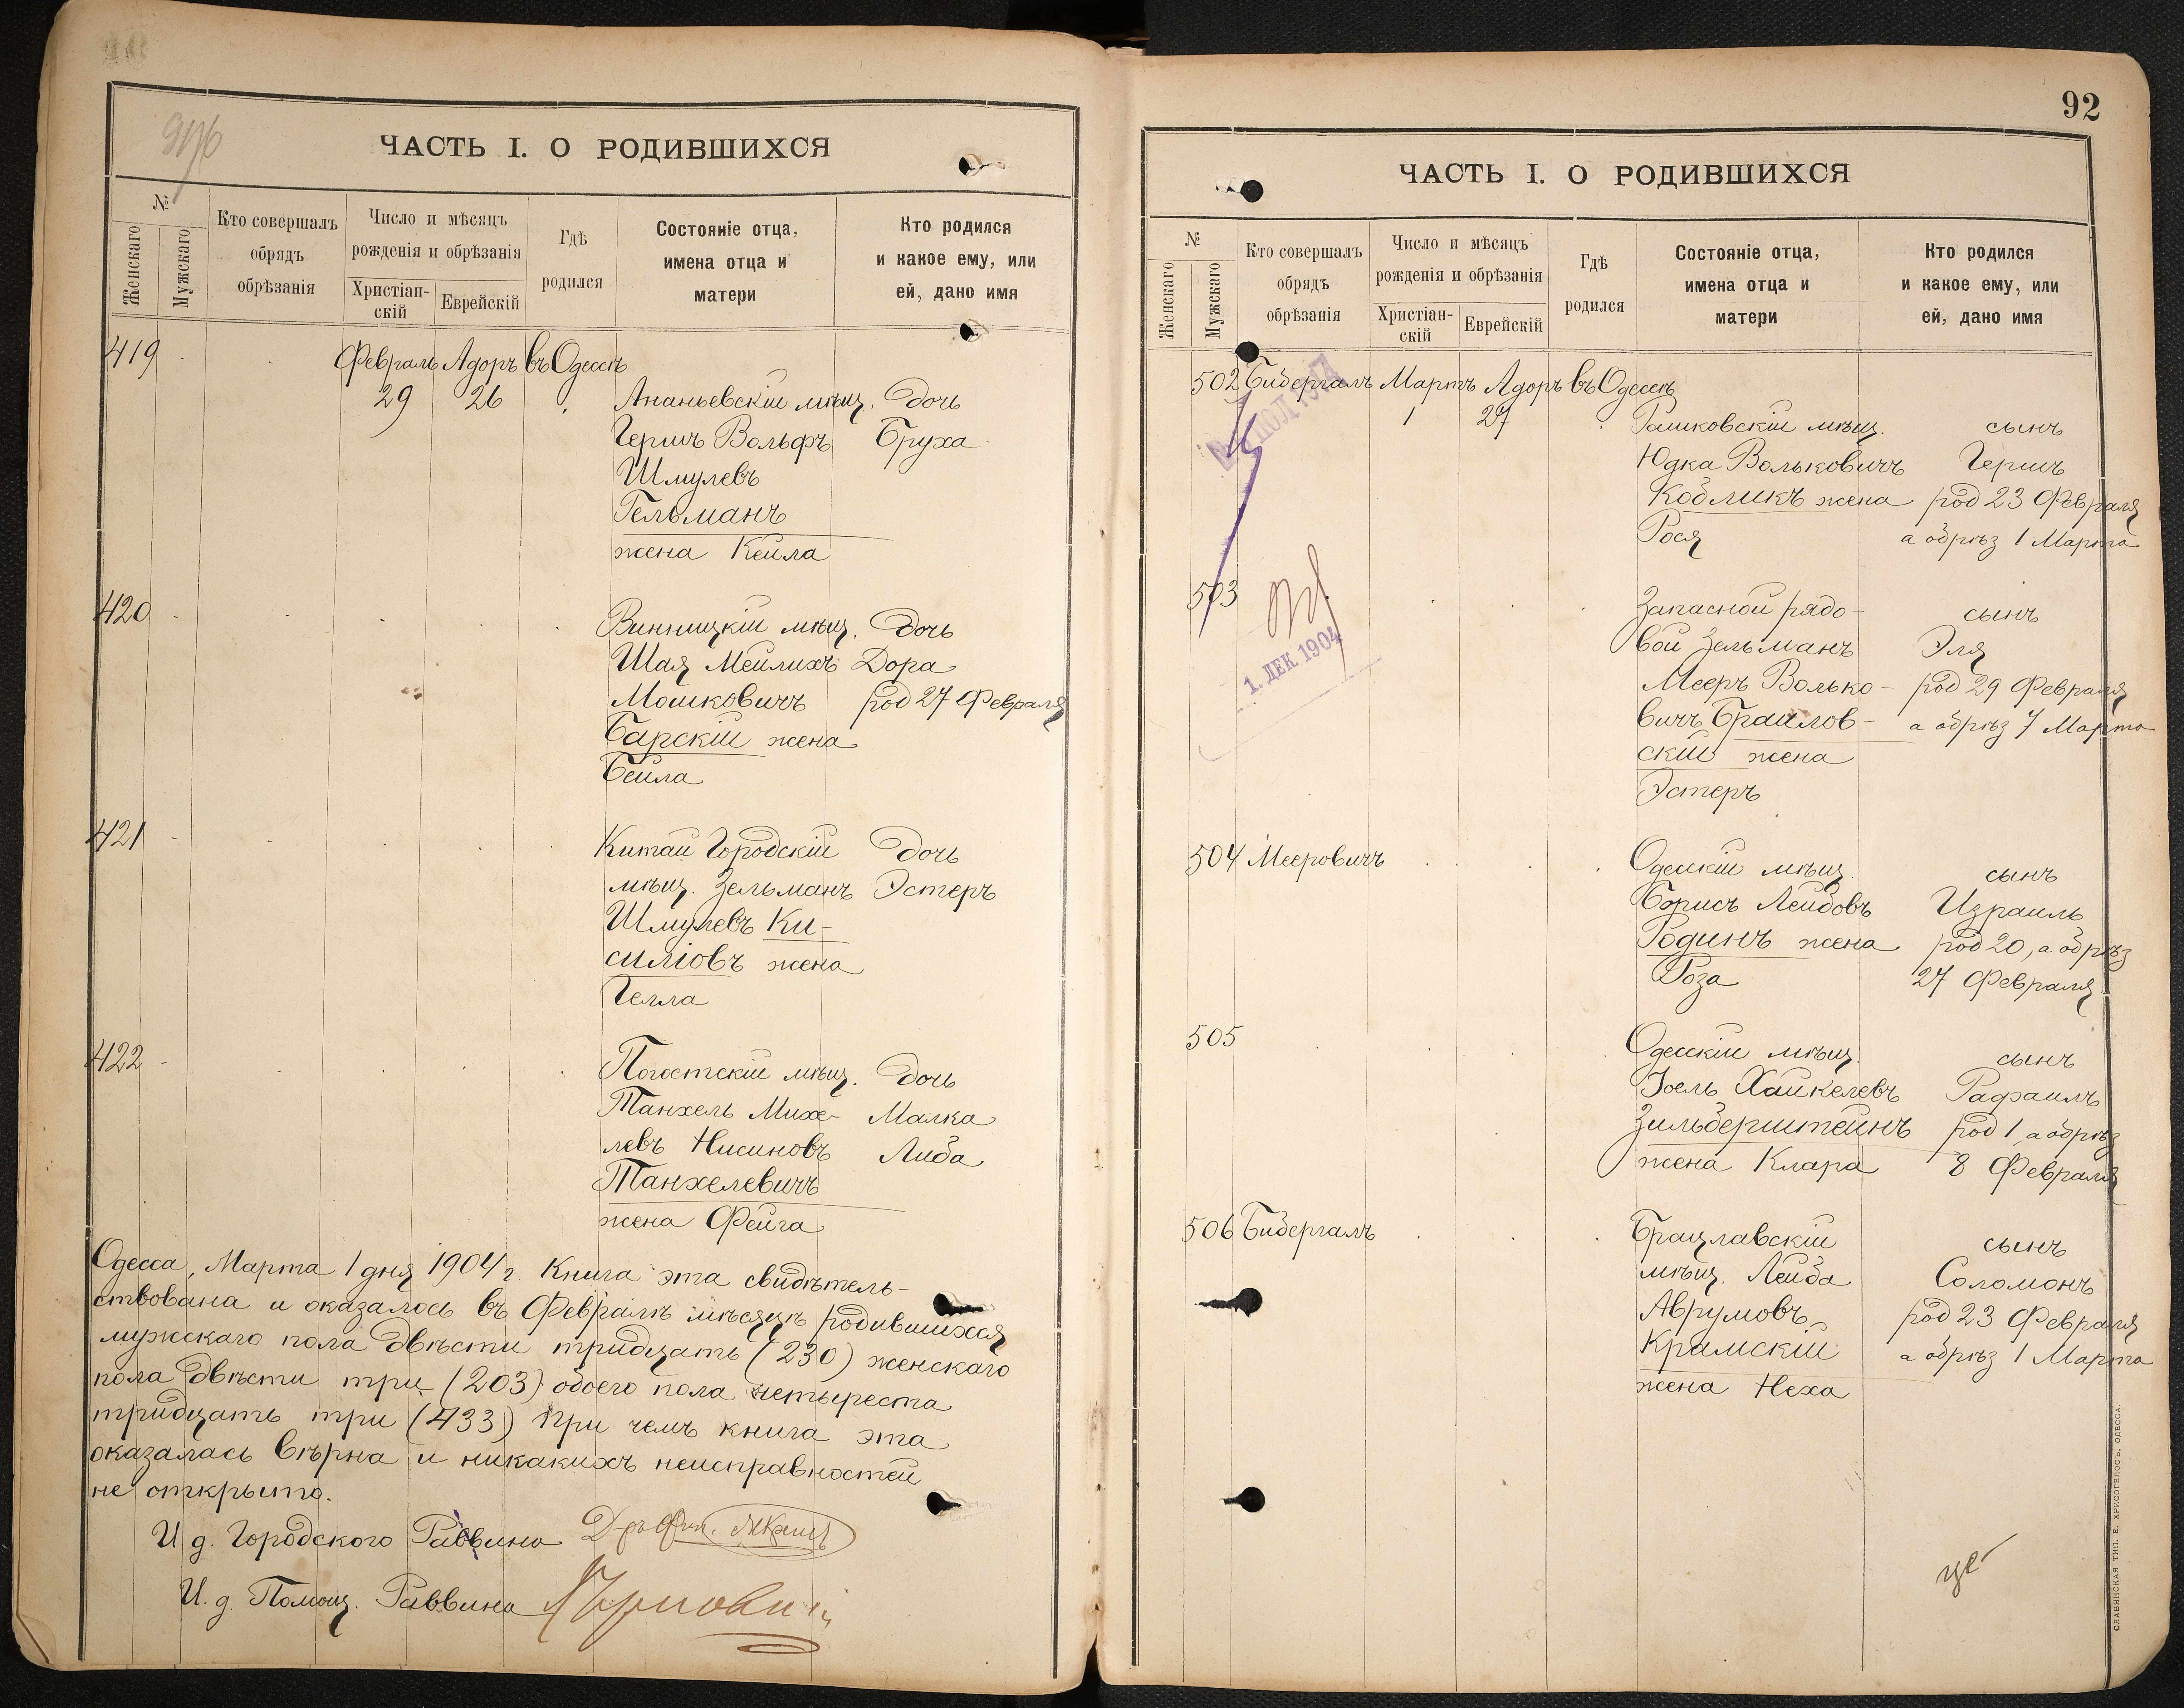 ЧАСТЬ I. О РОДИВШИХСЯ
№
Женскаго
Мужскаго
Кто совершалъ
обрядъ
обрѣзанія
Число и мѣсяцъ
рожденія и обрѣзанія
Христіан-
скій
Еврейскій
Гдѣ
родился
Состояніе отца,
имена отца и
матери
Кто родился
и какое ему, или
ей, дано имя
419
Февраль Адоръ въ Одессѣ
29 26 Ананьевскій мѣщ. дочь
Гершъ Вольфъ Бруха
Шмулевъ
Гельманъ
жена Кейла
420
Винницкій мѣщ. дочь
Шая Мейлихъ Дора
Мошковичъ род 27 Февраля
Барскій жена
Бейла
421
Китай Городскій дочь
мѣщ. Зельманъ Эстеръ
Шмулевъ Ки-
силіовъ жена
Гелла
422
Погостскій мѣщ. дочь
Танхель Михе- Малка
левъ Нисиновъ Либа
Танхелевичъ
жена Фейга
Одесса, Марта 1 дня 1904 г. Книга эта свидѣтель-
ствована и оказалось въ Февралѣ мѣсяцѣ родившихся
мужскаго пола двѣсти тридцать (230) женскаго
пола двѣсти три (203) обоего пола четыреста
тридцать три (433) При чемъ книга эта
оказалась вѣрна и никакихъ неисправностей
не открыто.
И д. Городского Раввина
И. д. Помощ. Раввина
92
ЧАСТЬ I. О РОДИВШИХСЯ
№
Женскаго
Мужскаго
Кто совершалъ
обрядъ
обрѣзанія
Число и мѣсяцъ
рожденія и обрѣзанія
Христіан-
скій
Еврейскій
Гдѣ
родился
Состояніе отца,
имена отца и
матери
Кто родился
и какое ему, или
ей, дано имя
502 Бибергалъ Мартъ Адоръ въ Одессѣ
1 27 Рашковскій мѣщ. сынъ
Юдка Вольковичъ Гершъ
Кобликъ жена род 23 Февраля
Рося а обрѣз 1 Марта
503
Запасной рядо- сынъ
вой Зельманъ Эля
Мееръ Волько- род 29 Февраля
вичъ Браилов- а обрѣз 7 Марта
скій жена
Эстеръ
1. ДЕК 1904
504 Мееровичъ Одесскій мѣщ. сынъ
Борисъ Лейбовъ Израиль
Родинъ жена род 20, а обрѣз
Роза 27 Февраля
505
Одесскій мѣщ. сынъ
Іоель Хайкелевъ Рафаилъ
Зильберштейнъ род 1 а обрѣз
жена Клара 8 Февраля
506 Бибергалъ Брацлавскій сынъ
мѣщ. Лейба Соломонъ
Аврумовъ род 23 Февраля
Крамскій а обрѣз 1 Марта
жена Неха
СЛАВЯНСКАЯ ТИП. Е. ХРИСОГЕЛОСЪ, ОДЕССА.